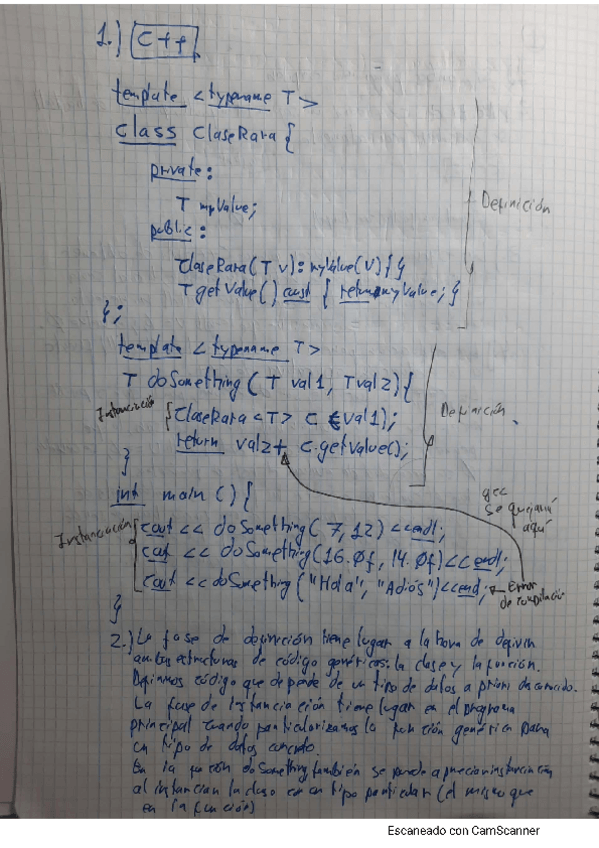 1.) C++
template <typename T>
class ClaseRara {
private:
T myValue;
public:
ClaseRara(T v): myValue(v) { }
T getValue() const { return myValue; }
};
Definición
template <typename T>
T doSomething( T val1, T val2) {
Instanciación
ClaseRara<T> c (val1);
return val2 + c.getValue();
}
Definición
int main () {
gcc
se quejará
aquí
Instanciación
cout << doSomething( 7, 12) << endl;
cout << doSomething(16.0f, 14.0f) << endl;
cout << doSomething("Hola", "Adiós") << endl;
Error
de compilación
}
2.) La fase de definición tiene lugar a la hora de definir
ambas estructuras de código genéricas: la clase y la función.
Definimos código que depende de un tipo de datos a priori desconocido.
La fase de instanciación tiene lugar en el programa
principal cuando particularizamos la función genérica para
un tipo de datos concreto.
En la función doSomething también se puede apreciar instanciación
al instanciar la clase con un tipo particular (el mismo que
en la función)
Escaneado con CamScanner